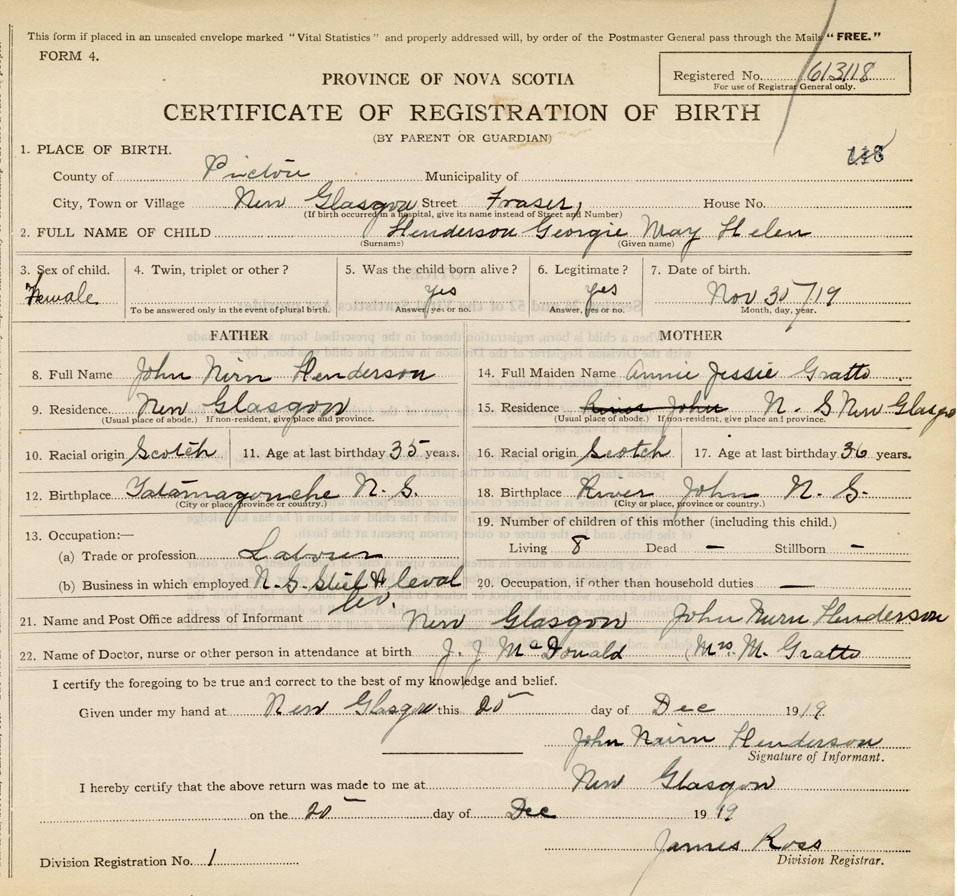 This form if placed in an unsealed envelope marked "Vital Statistics" and properly addressed will, by order of the Postmaster General pass through the Mails "FREE."
FORM 4.
Registered No. 613118
For use of Registrar General only.
PROVINCE OF NOVA SCOTIA
CERTIFICATE OF REGISTRATION OF BIRTH
(BY PARENT OR GUARDIAN)
1. PLACE OF BIRTH.
County of Pictou Municipality of
City, Town or Village New Glasgow Street Fraser House No.
(If birth occurred in a hospital, give its name instead of Street and Number)
2. FULL NAME OF CHILD Henderson Georgie May Helen
(Surname) (Given name)
3. Sex of child. 4. Twin, triplet or other? 5. Was the child born alive? 6. Legitimate? 7. Date of birth.
Female yes yes Nov 30/19
To be answered only in the event of plural birth. Answer, yes or no. Answer, yes or no. Month, day, year.
FATHER MOTHER
8. Full Name John Nirn Henderson 14. Full Maiden Name Annie Jessie Gratto
9. Residence. New Glasgow 15. Residence River John N. S New Glasgo
(Usual place of abode.) If non-resident, give place and province. (Usual place of abode.) If non-resident, give place and province.
10. Racial origin Scotch 11. Age at last birthday 35 years. 16. Racial origin Scotch 17. Age at last birthday 36 years.
12. Birthplace Tatamagouche N. S. 18. Birthplace River John N. S.
(City or place, province or country.) (City or place, province or country.)
13. Occupation:— 19. Number of children of this mother (including this child.)
(a) Trade or profession Labour Living 8 Dead – Stillborn –
(b) Business in which employed N. S. Steel & 20. Occupation, if other than household duties —
21. Name and Post Office address of Informant New Glasgow John Nurn Henderson
22. Name of Doctor, nurse or other person in attendance at birth J. J McDonald (Mrs. M. Gratto
I certify the foregoing to be true and correct to the best of my knowledge and belief.
Given under my hand at New Glasgow this 20 day of Dec 1919
John Nairn Henderson
Signature of Informant.
I hereby certify that the above return was made to me at New Glasgow
on the 20 day of Dec 1919
James Ross
Division Registration No. 1 Division Registrar.